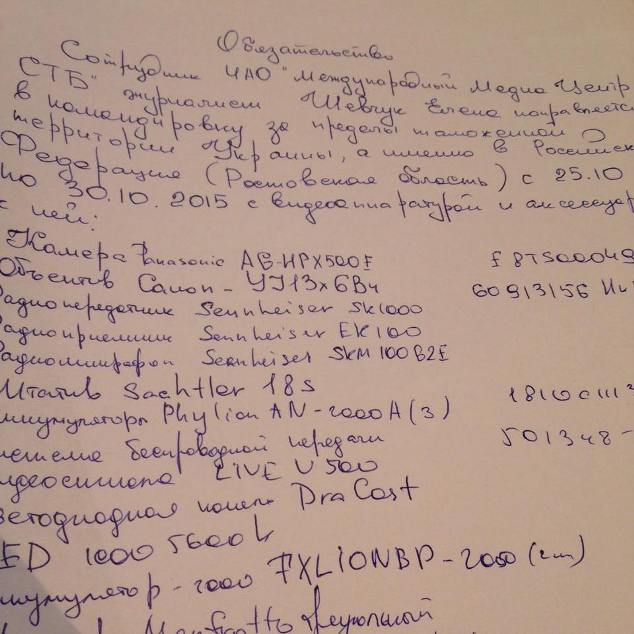 Обязательство
Сотрудник ЧАО "Международный Медиа Центр
СТБ" журналист Шевчук Елена направляется
в командировку за пределы таможенной
территории Украины, а именно в Российск
Федерацию (Ростовская область) с 25.10
по 30.10.2015 с видеоаппаратурой и аксессуар
с ней:
Камера Panasonic AG-HPX500E F8TS00049
Объектив Canon - YJ13x6B4 60913156
адиопередатчик Sennheiser SK1000
адиоприемник Sennheiser EK100
адиомикрофон Sennheiser SKM100B2E
Штатив Sachtler 18s
ккумуляторы Phylion AN-2000A (3)
истема беспроводной передачи 501348-
идеосигнала LIVE U500
ветодиодная панель DraCast
ED 1000 5600
ккумулятор-2000 FXLIONBP-2000 (2шт)
Manfrotto